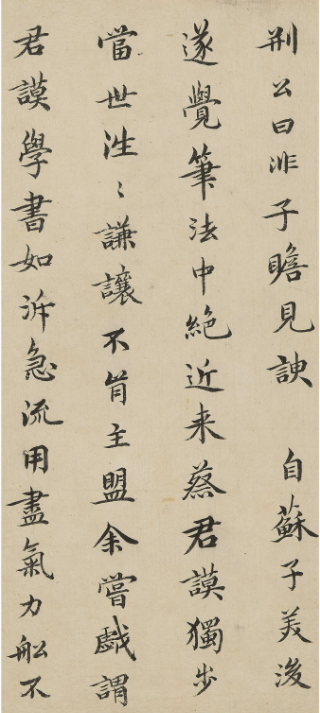 荆公曰非子瞻見諛　自蘇子美没
遂覺筆法中絶近来蔡君謨獨步
當世泩〻謙讓不肯主盟余嘗戱謂
君謨學書如泝急流用盡氣力舩不